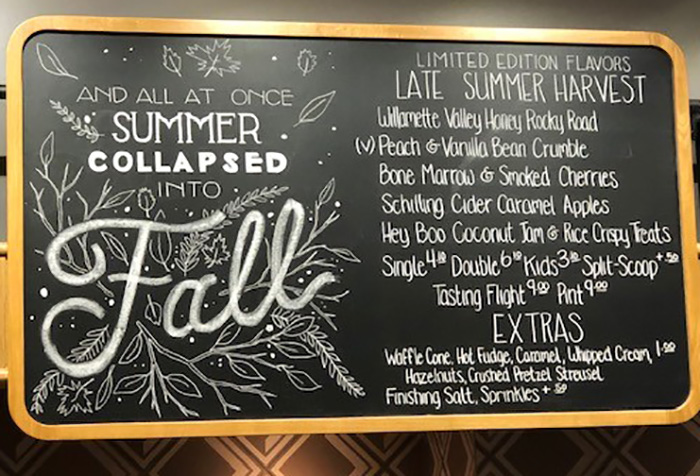 AND ALL AT ONCE
SUMMER
COLLAPSED
INTO
Fall
LIMITED EDITION FLAVORS
LATE SUMMER HARVEST
Willamette Valley Honey Rocky Road
(V) Peach & Vanilla Bean Crumble
Bone Marrow & Smoked Cherries
Schilling Cider Caramel Apples
Hey Boo Coconut Jam & Rice Crispy Treats
Single Double Kids Split-Scoop +.50
Tasting Flight 9.00 Pint 9.00
EXTRAS
Waffle Cone, Hot Fudge, Caramel, Whipped Cream, 1.00
Hazelnuts, Crushed Pretzel Streusel
Finishing Salt, Sprinkles + .50